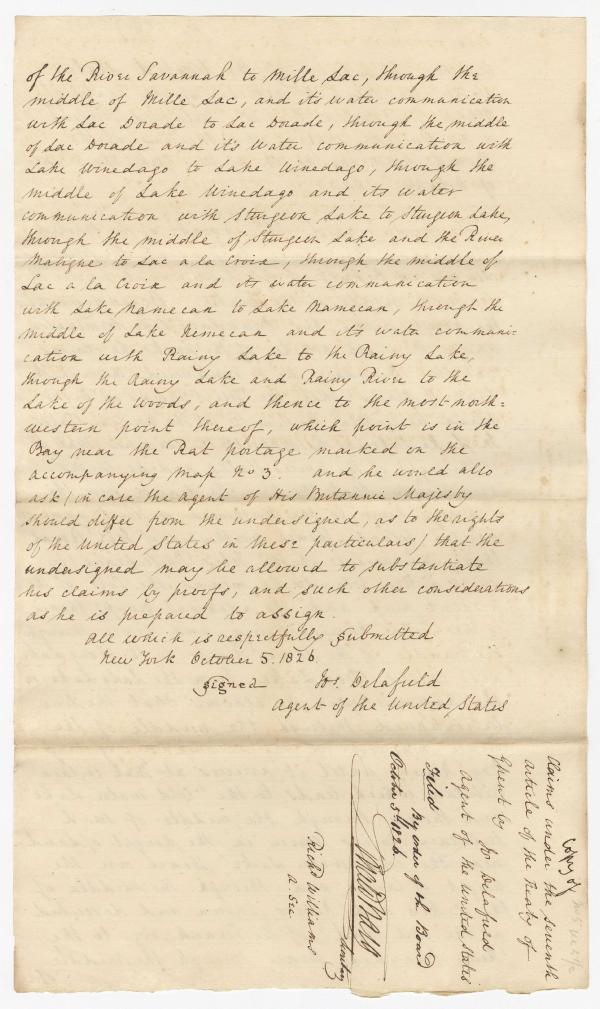 of the River Savannah to Mille Lac, through the
middle of Mille Lac, and its water communication
with Lac Dorade to Lac Dorade, through the middle
of Lac Dorade and it's water communication with
Lake Winedago to Lake Winedago, through the
middle of Lake Winedago and its water
communication with Sturgeon Lake to Sturgeon Lake,
through the middle of Sturgeon Lake and the River
Maligne to Lac a la Croix, through the middle of
Lac a la Croix and its water communication
with Lake Namecan to Lake Namecan, through the
middle of Lake Nemecan and it's water communi=
cation with Rainy Lake to the Rainy Lake,
through the Rainy Lake and Rainy River to the
Lake of the Woods, and thence to the most north=
western point thereof, which point is in the
Bay near the Rat portage marked on the
accompanying map No 3. and he would also
ask (in case the agent of His Britannic Majesty
should differ from the undersigned, as to the rights
of the United States in these particulars) that the
undersigned may be allowed to substantiate
his claims by proofs, and such other considerations
as he is prepared to assign.
All which is respectfully submitted
New York October 5. 1826
signed Jos. Delafield
Agent of the United States
Copy of
Claims under the seventh
article of the Treaty of
Ghent by Jos Delafield
Agent of the United States
Filed By order of the Board
October 5th 1826.
Richd Williams
a. Sec